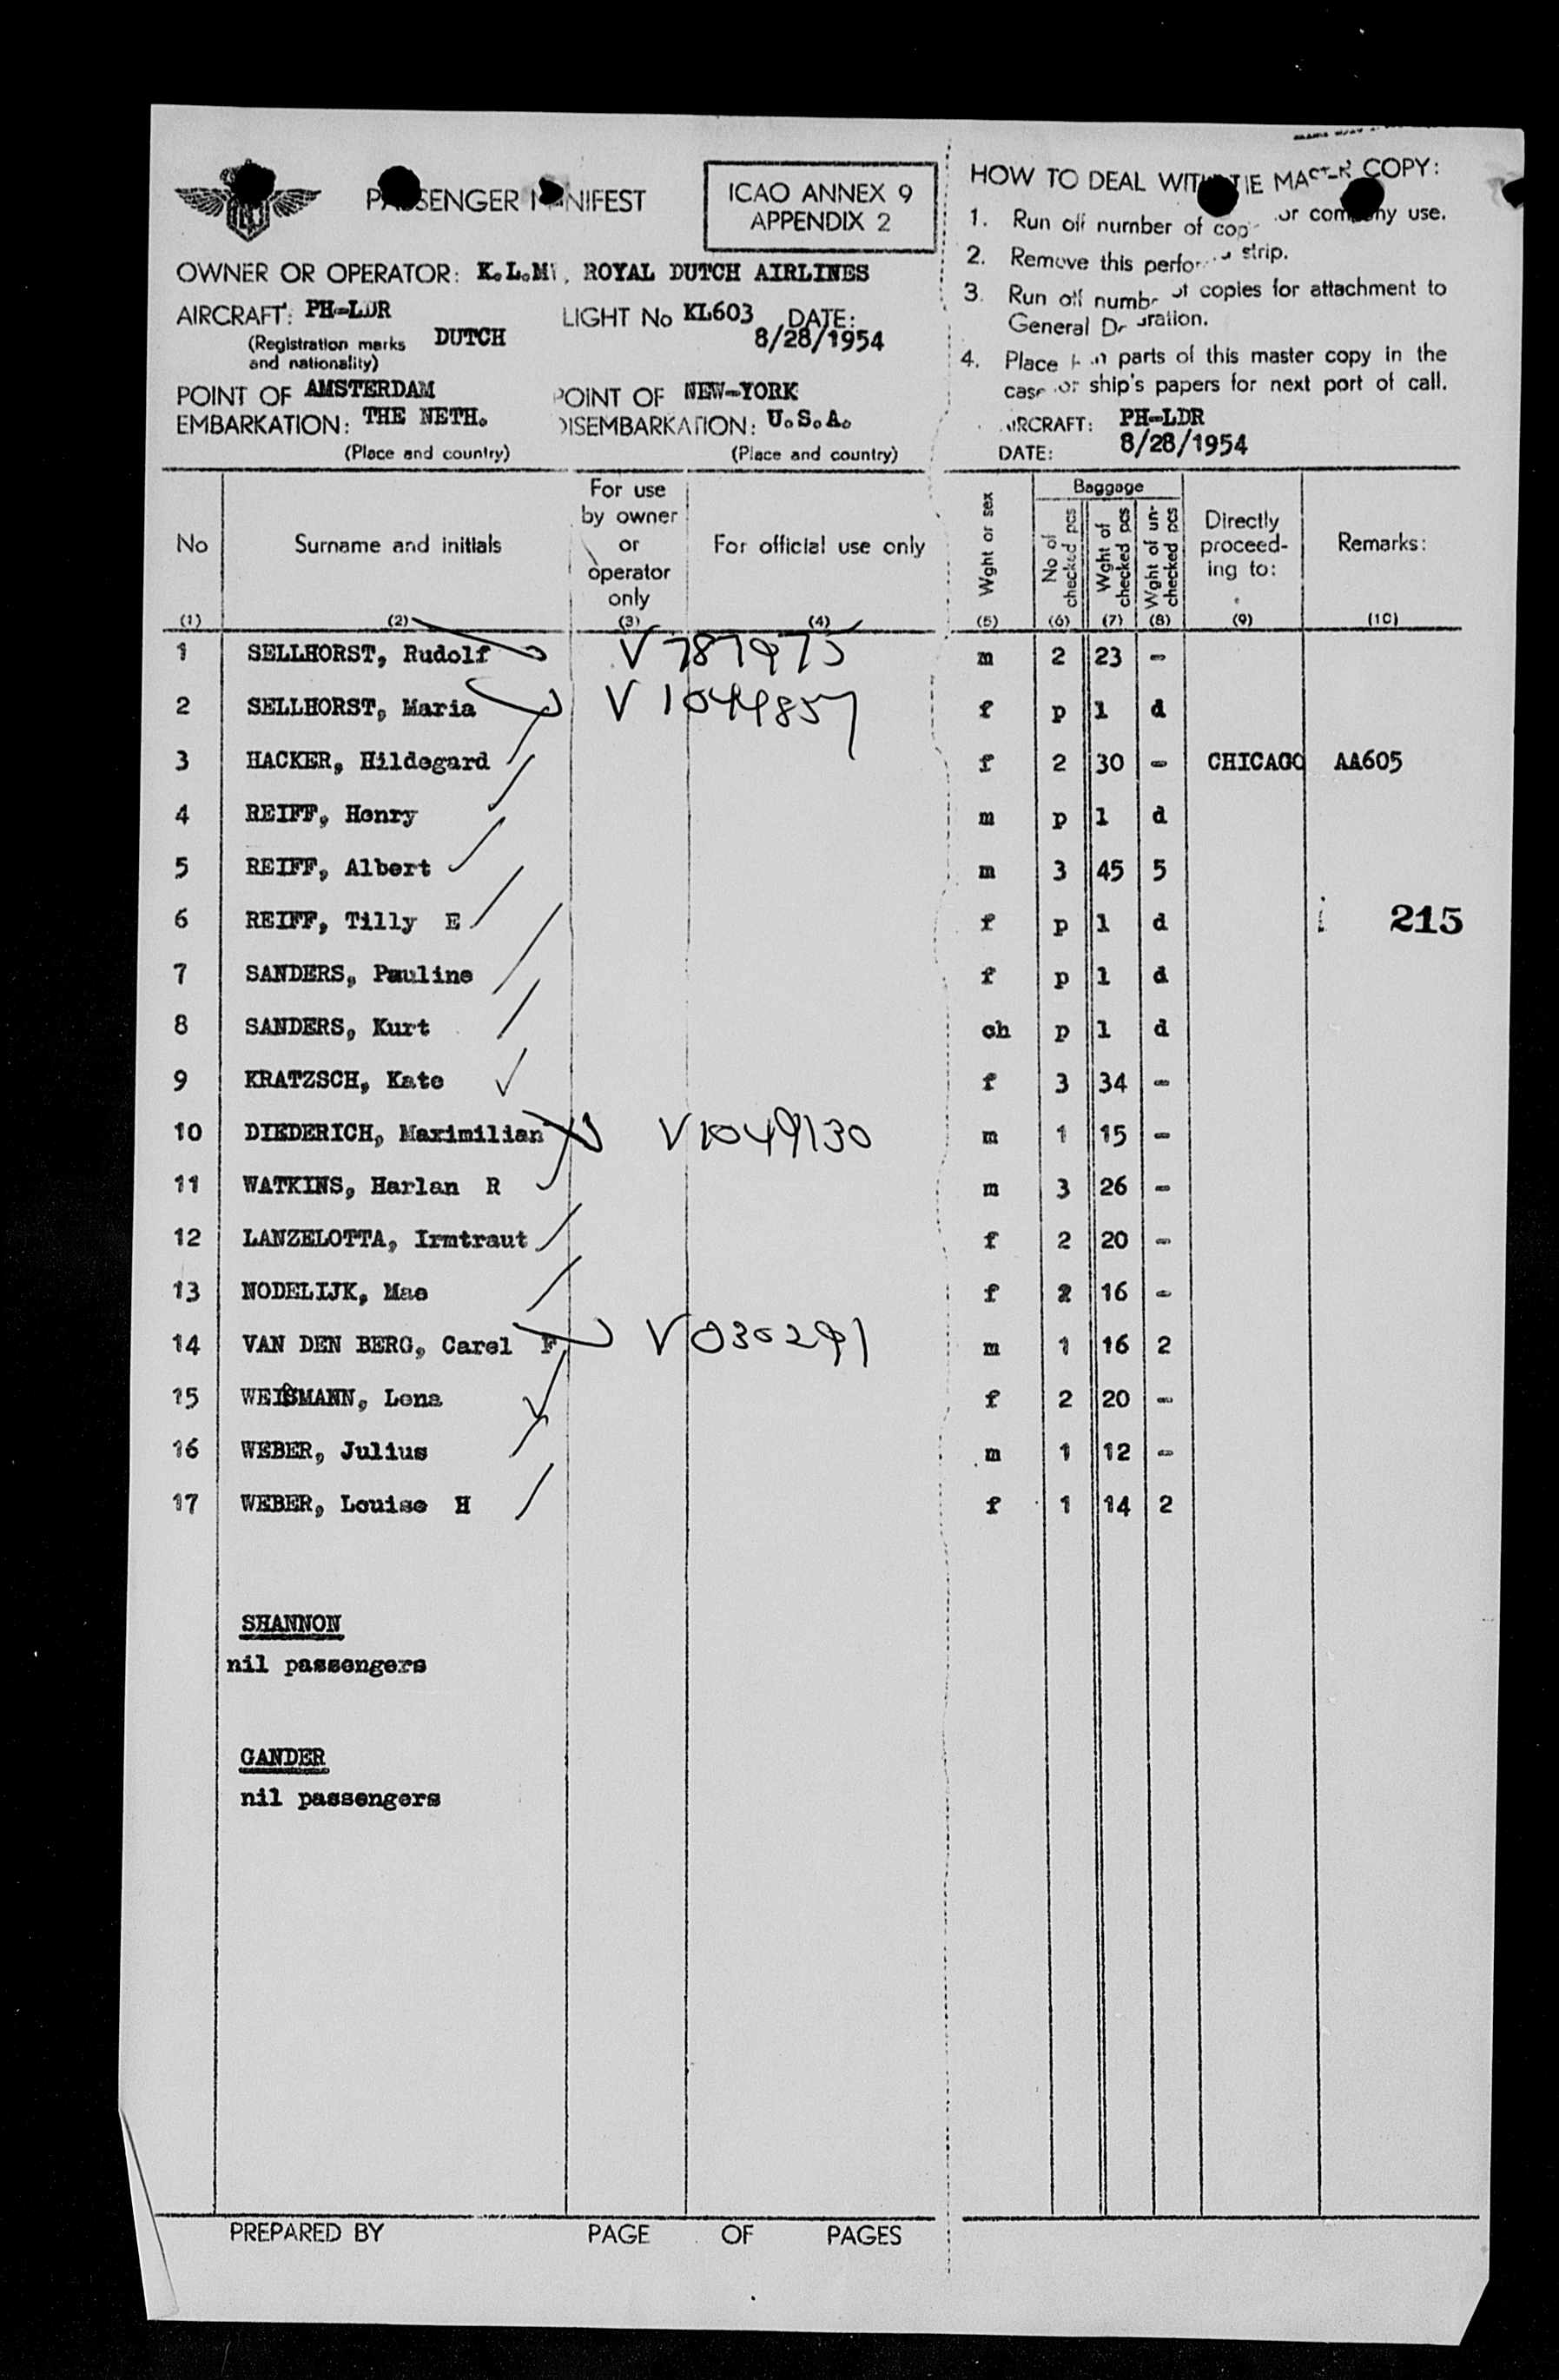 PASSENGER MANIFEST
ICAO ANNEX 9
APPENDIX 2
OWNER OR OPERATOR: K.L.M. ROYAL DUTCH AIRLINES
AIRCRAFT: PH-LDR LIGHT No KL603 DATE: 8/28/1954
(Registration marks and nationality) DUTCH
POINT OF EMBARKATION: AMSTERDAM THE NETH. POINT OF DISEMBARKATION: NEW-YORK U.S.A.
(Place and country) (Place and country)
HOW TO DEAL WITH THE MASTER COPY:
1. Run off number of cop or company use.
2. Remove this perfor strip.
3. Run off numbe of copies for attachment to
General De aration.
4. Place parts of this master copy in the
case or ship's papers for next port of call.
AIRCRAFT: PH-LDR
DATE: 8/28/1954
No Surname and initials For use by owner or operator only For official use only Wght or sex Baggage No of checked pcs Wght of checked pcs Wght of un-checked pcs Directly proceed-ing to: Remarks:
(1) (2) (3) (4) (5) (6) (7) (8) (9) (10)
1 SELLHORST, Rudolf V787975 m 2 23 -
2 SELLHORST, Maria V1044857 f p l d
3 HACKER, Hildegard f 2 30 - CHICAGO AA605
4 REIFF, Henry m p l d
5 REIFF, Albert m 3 45 5
6 REIFF, Tilly E f p l d
215
7 SANDERS, Pauline f p l d
8 SANDERS, Kurt ch p l d
9 KRATZSCH, Kate f 3 34 -
10 DIEDERICH, Maximilian V1049130 m 1 15 -
11 WATKINS, Harlan R m 3 26 -
12 LANZELOTTA, Irmtraut f 2 20 -
13 NODELIJK, Mae f 2 16 -
14 VAN DEN BERG, Carel F V030291 m 1 16 2
15 WEISMANN, Lena f 2 20 -
16 WEBER, Julius m 1 12 -
17 WEBER, Louise H f 1 14 2
SHANNON
nil passengers
GANDER
nil passengers
PREPARED BY PAGE OF PAGES